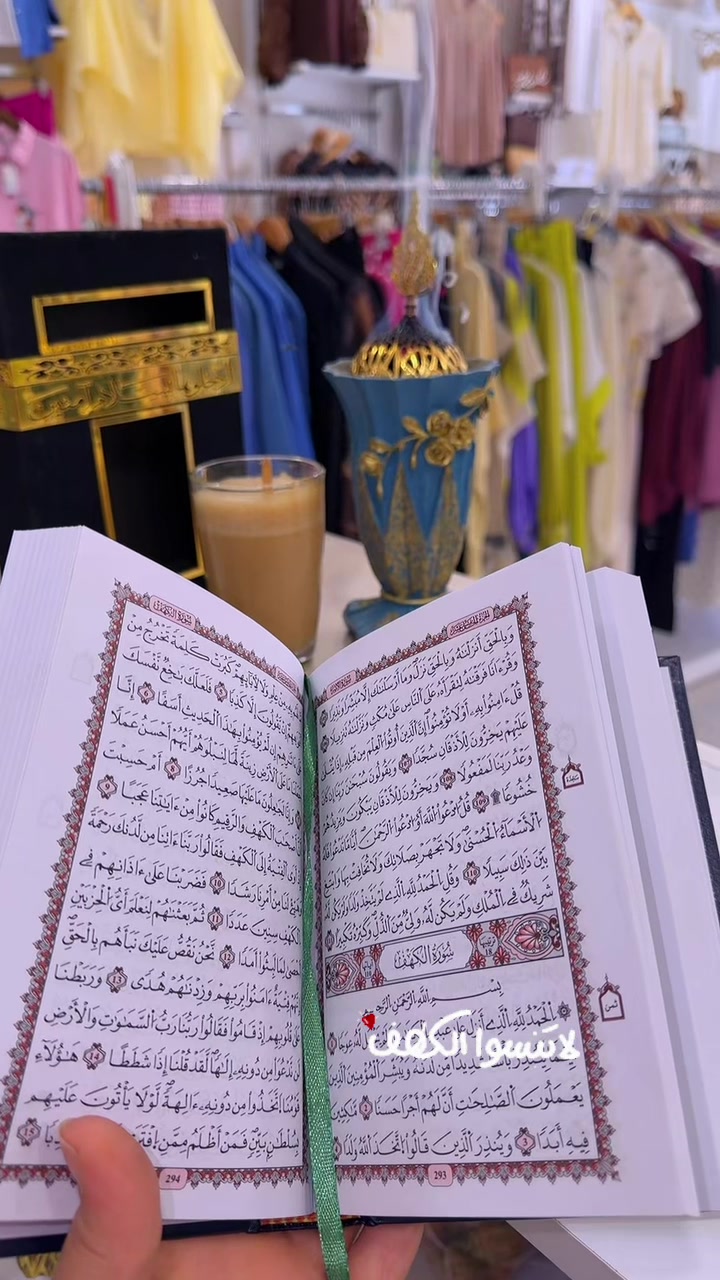 وَبِالْحَقِّ أَنزَلْنَٰهُ وَبِالْحَقِّ نَزَلَ وَمَا أَرْسَلْنَٰكَ إِلَّا مُبَشِّرًا وَنَذِيرًا
وَقُرْءَانًا فَرَقْنَٰهُ لِتَقْرَأَهُ عَلَى النَّاسِ عَلَىٰ مُكْثٍ وَنَزَّلْنَٰهُ تَنزِيلًا
قُلْ ءَامِنُوا بِهِ أَوْ لَا تُؤْمِنُوا إِنَّ الَّذِينَ أُوتُوا الْعِلْمَ مِن قَبْلِهِ إِذَا يُتْلَىٰ
عَلَيْهِمْ يَخِرُّونَ لِلْأَذْقَانِ سُجَّدًا وَيَقُولُونَ سُبْحَٰنَ رَبِّنَا إِن كَانَ
وَعْدُ رَبِّنَا لَمَفْعُولًا 108 وَيَخِرُّونَ لِلْأَذْقَانِ يَبْكُونَ وَيَزِيدُهُمْ
خُشُوعًا ۩ 109 قُلِ ادْعُوا اللَّهَ أَوِ ادْعُوا الرَّحْمَٰنَ أَيًّا مَّا تَدْعُوا فَلَهُ
الْأَسْمَاءُ الْحُسْنَىٰ وَلَا تَجْهَرْ بِصَلَاتِكَ وَلَا تُخَافِتْ بِهَا وَابْتَغِ
بَيْنَ ذَٰلِكَ سَبِيلًا 110 وَقُلِ الْحَمْدُ لِلَّهِ الَّذِي لَمْ يَتَّخِذْ وَلَدًا وَلَمْ يَكُن لَّهُ
شَرِيكٌ فِي الْمُلْكِ وَلَمْ يَكُن لَّهُ وَلِيٌّ مِّنَ الذُّلِّ وَكَبِّرْهُ تَكْبِيرًا
سُورَةُ الْكَهْفِ
بِسْمِ اللَّهِ الرَّحْمَٰنِ الرَّحِيمِ
الْحَمْدُ لِلَّهِ الَّذِي أَنزَلَ عَلَىٰ عَبْدِهِ عِوَجًا
لا تنسوا الكهف
شَدِيدًا مِّن لَّدُنْهُ وَيُبَشِّرَ الْمُؤْمِنِينَ الَّذِينَ
يَعْمَلُونَ الصَّٰلِحَٰتِ أَنَّ لَهُمْ أَجْرًا حَسَنًا 2 مَّٰكِثِينَ
فِيهِ أَبَدًا 3 وَيُنذِرَ الَّذِينَ قَالُوا اتَّخَذَ اللَّهُ وَلَدًا
293
سُورَةُ الْكَهْفِ
مِنْ عِلْمٍ وَلَا لِآبَائِهِمْ كَبُرَتْ كَلِمَةً تَخْرُجُ مِنْ
إِن يَقُولُونَ إِلَّا كَذِبًا 5 فَلَعَلَّكَ بَٰخِعٌ نَّفْسَكَ
إِن لَّمْ يُؤْمِنُوا بِهَٰذَا الْحَدِيثِ أَسَفًا 6 إِنَّا
مَا عَلَى الْأَرْضِ زِينَةً لَّهَا لِنَبْلُوَهُمْ أَيُّهُمْ أَحْسَنُ عَمَلًا
وَإِنَّا لَجَٰعِلُونَ مَا عَلَيْهَا صَعِيدًا جُرُزًا 8 أَمْ حَسِبْتَ
أَصْحَٰبَ الْكَهْفِ وَالرَّقِيمِ كَانُوا مِنْ ءَايَٰتِنَا عَجَبًا 9
أَوَى الْفِتْيَةُ إِلَى الْكَهْفِ فَقَالُوا رَبَّنَا ءَاتِنَا مِن لَّدُنكَ رَحْمَةً
وَهَيِّئْ لَنَا مِنْ أَمْرِنَا رَشَدًا 10 فَضَرَبْنَا عَلَىٰ ءَاذَانِهِمْ فِي
الْكَهْفِ سِنِينَ عَدَدًا 11 ثُمَّ بَعَثْنَٰهُمْ لِنَعْلَمَ أَيُّ الْحِزْبَيْنِ
أَحْصَىٰ لِمَا لَبِثُوا أَمَدًا 12 نَّحْنُ نَقُصُّ عَلَيْكَ نَبَأَهُم بِالْحَقِّ
فِتْيَةٌ ءَامَنُوا بِرَبِّهِمْ وَزِدْنَٰهُمْ هُدًى 13 وَرَبَطْنَا
عَلَىٰ قُلُوبِهِمْ إِذْ قَامُوا فَقَالُوا رَبُّنَا رَبُّ السَّمَٰوَٰتِ وَالْأَرْضِ
لَن نَّدْعُوَا مِن دُونِهِ إِلَٰهًا لَّقَدْ قُلْنَا إِذًا شَطَطًا 14 هَٰؤُلَاءِ
قَوْمُنَا اتَّخَذُوا مِن دُونِهِ ءَالِهَةً لَّوْلَا يَأْتُونَ عَلَيْهِم
بِسُلْطَٰنٍ بَيِّنٍ فَمَنْ أَظْلَمُ مِمَّنِ افْتَرَىٰ 15
294